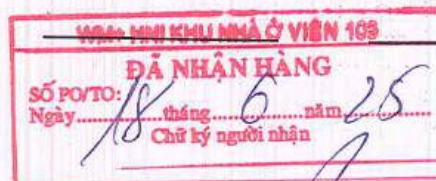 WM+ HNI KHU NHÀ Ở VIỆN 103
ĐÃ NHẬN HÀNG
SỐ PO/TO:
Ngày 18 tháng 6 năm 25
Chữ ký người nhận